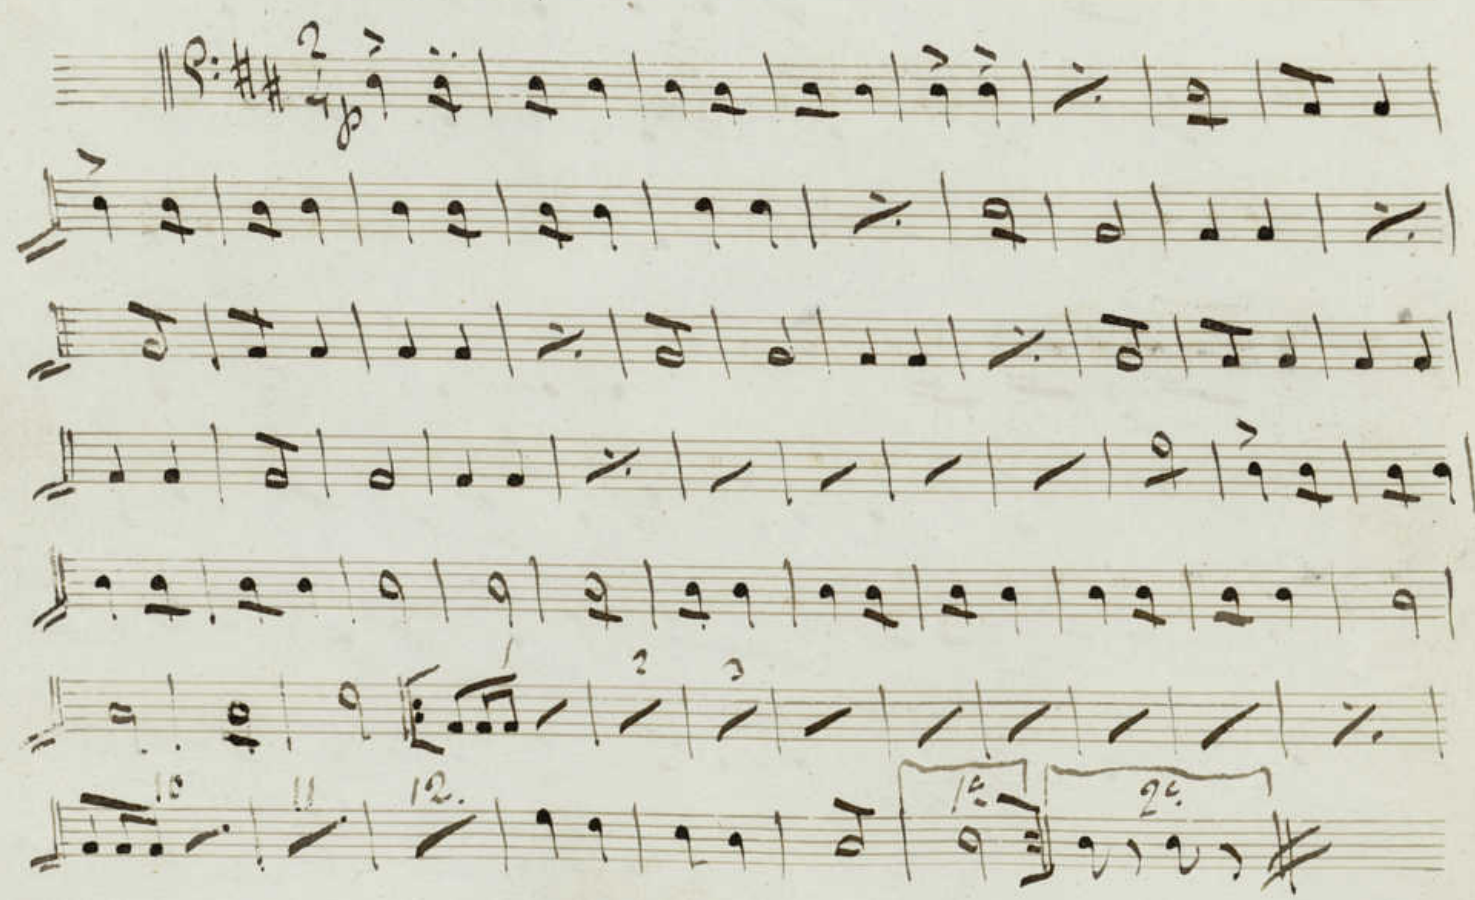 2
4 p
1 2 3
10 11 12.
1ª 2ª.